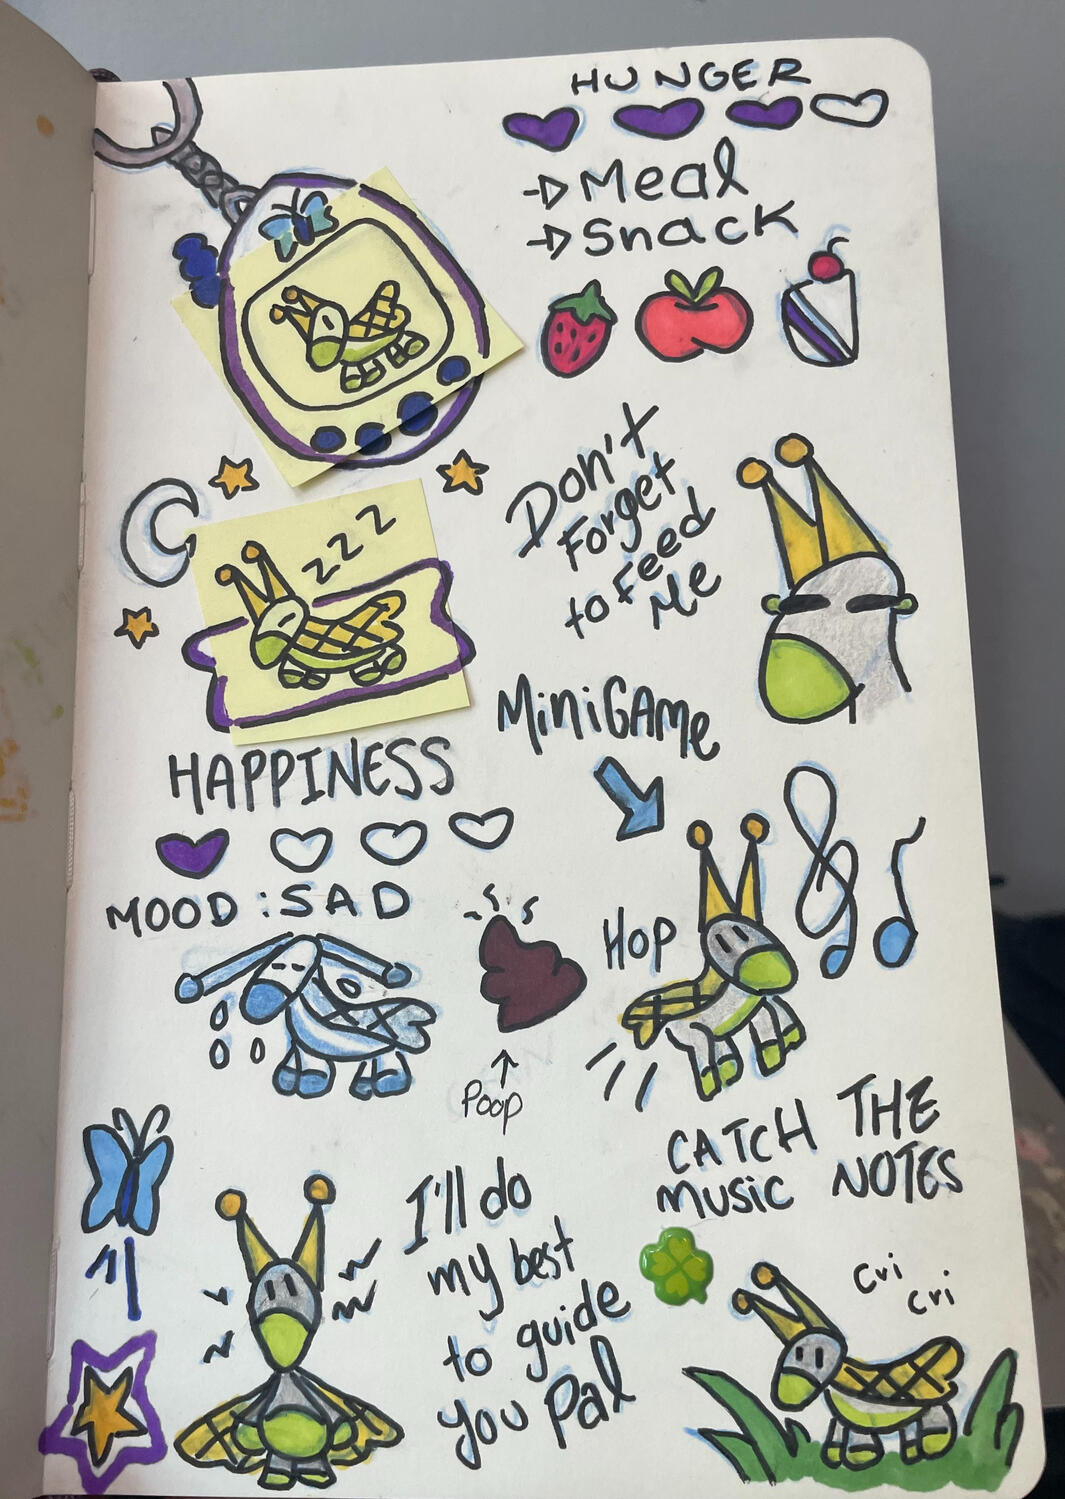 HUNGER
→Meal
→Snack
Don't
Forget
to Feed
Me
zzz
MiniGAMe
HAPPINESS
MOOD:SAD
HOP
Poop
CATCH THE
MUSIC NOTES
I'll do
my best
to guide
you Pal
cri
cri